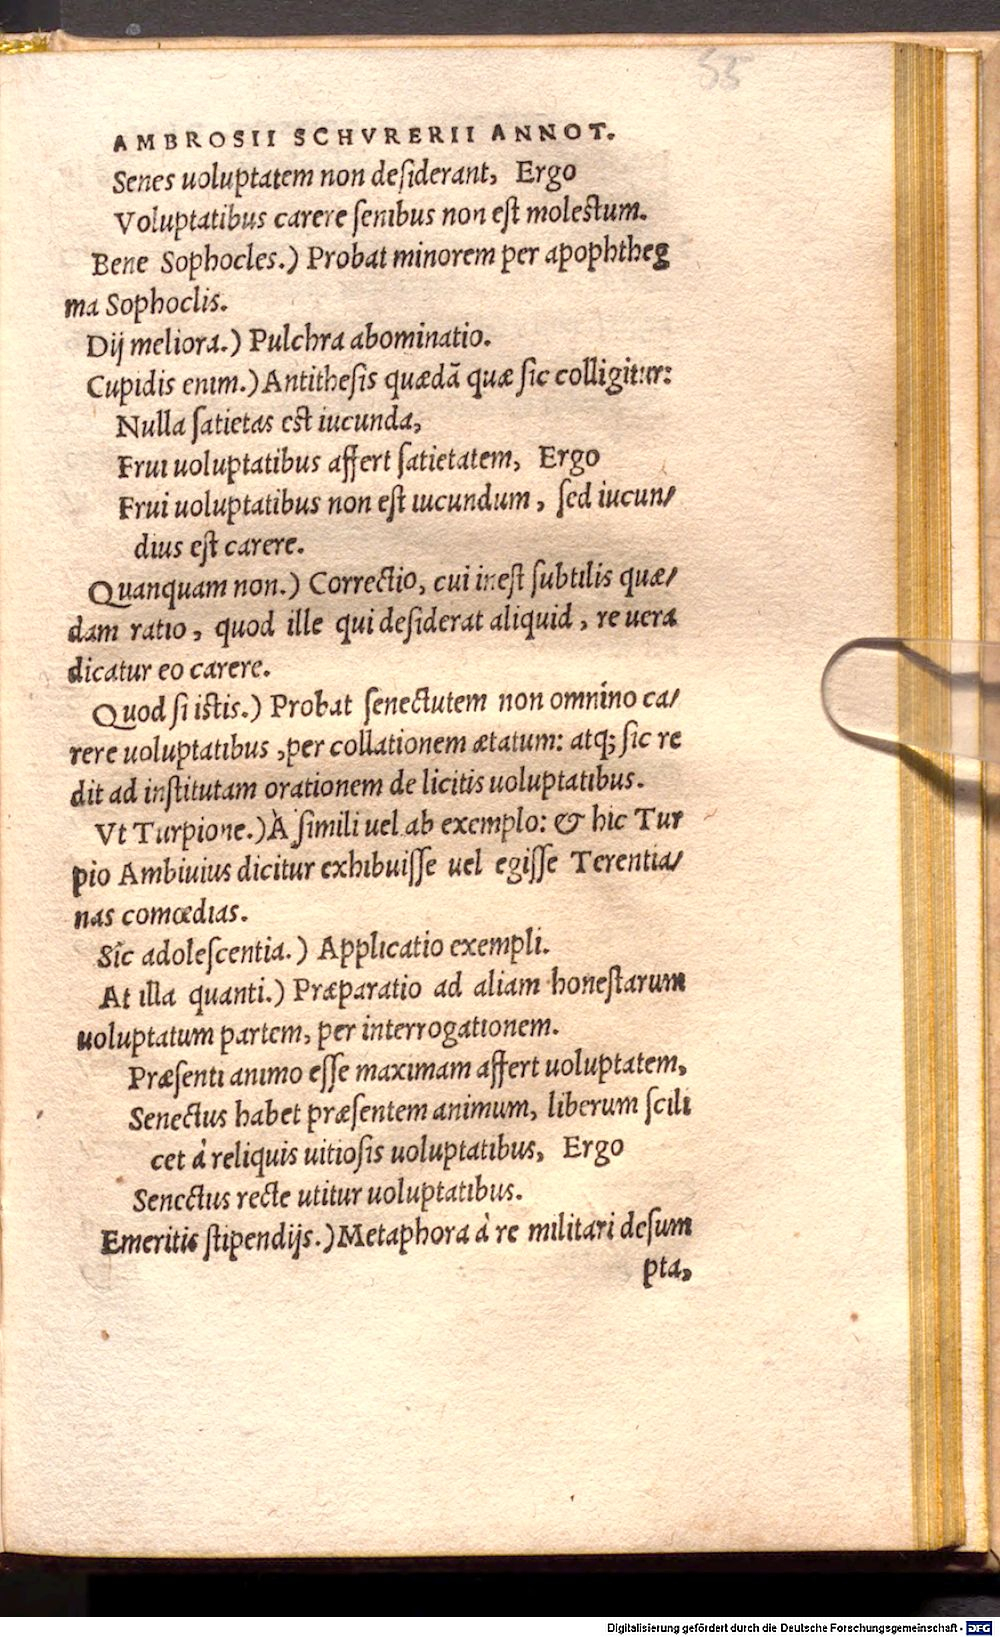 53
AMBROSII SCHVRERII ANNOT.
Senes uoluptatem non deſiderant, Ergo
Voluptatibus carere ſenibus non eſt moleſtum.
Bene Sophocles.) Probat minorem per apophtheg
ma Sophoclis.
Dij meliora.) Pulchra abominatio.
Cupidis enim.) Antitheſis quædã quæ ſic colligitur:
Nulla ſatietas eſt iucunda,
Frui uoluptatibus affert ſatietatem, Ergo
Frui uoluptatibus non eſt iucundum, ſed iucun/
dius eſt carere.
Quanquam non.) Correctio, cui ineſt ſubtilis quæ/
dam ratio, quod ille qui deſiderat aliquid, re uera
dicatur eo carere.
Quod ſi iſtis.) Probat ſenectutem non omnino ca/
rere uoluptatibus, per collationem ætatum: atq; ſic re
dit ad inſtitutam orationem de licitis uoluptatibus.
Vt Turpione.) À ſimili uel ab exemplo: & hic Tur
pio Ambiuius dicitur exhibuiſſe uel egiſſe Terentia/
nas comœdias.
Sic adoleſcentia.) Applicatio exempli.
At illa quanti.) Præparatio ad aliam honeſtarum
uoluptatum partem, per interrogationem.
Præſenti animo eſſe maximam affert uoluptatem,
Senectus habet præſentem animum, liberum ſcili
cet à reliquis uitioſis uoluptatibus, Ergo
Senectus recte utitur uoluptatibus.
Emeritis ſtipendijs.) Metaphora à re militari deſum
pta,
Digitalisierung gefördert durch die Deutsche Forschungsgemeinschaft - DFG